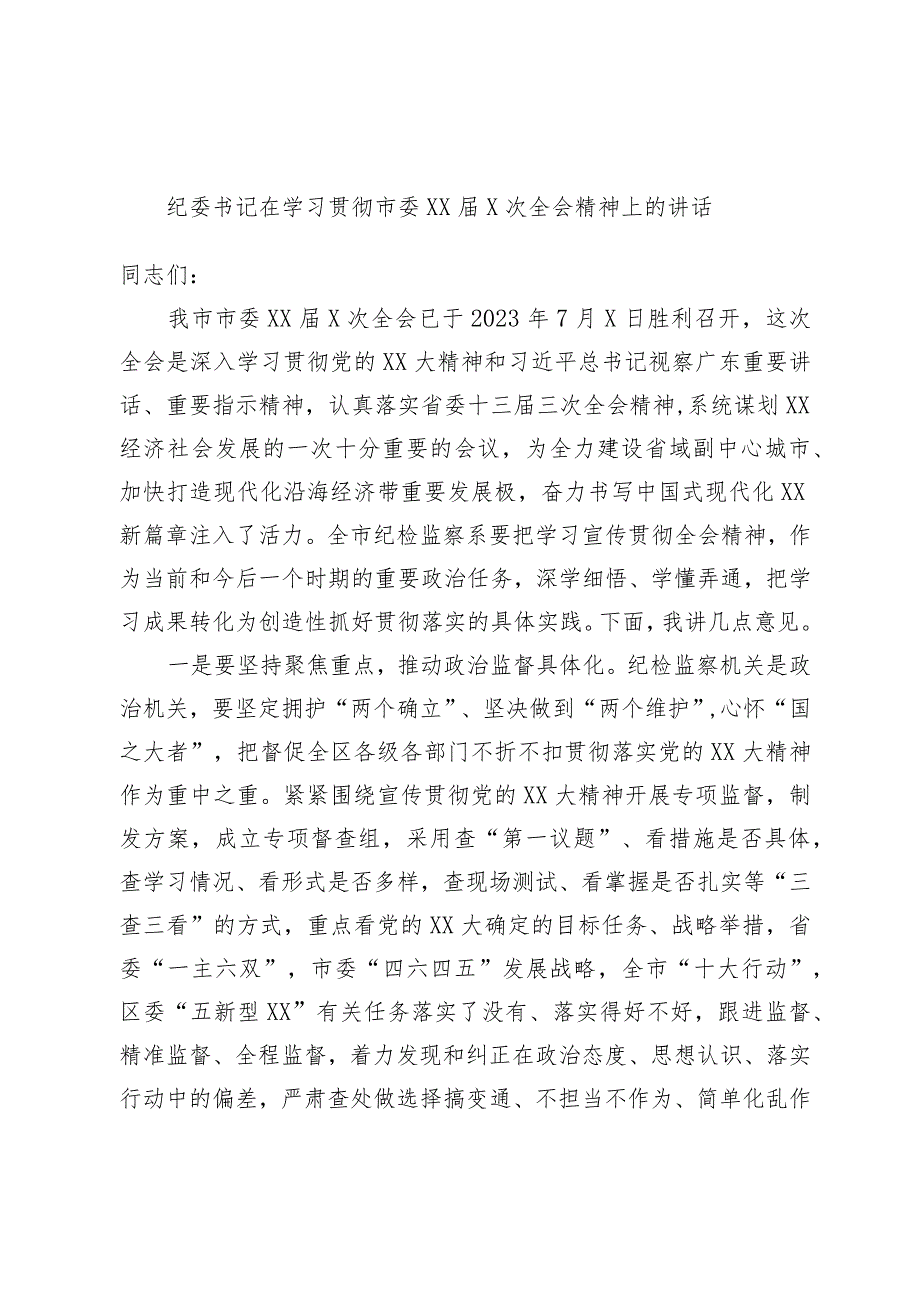 纪委书记在学习贯彻市委 XX 届 X 次全会精神上的讲话
同志们：
我市市委 XX 届 X 次全会已于 2023 年 7 月 X 日胜利召开，这次
全会是深入学习贯彻党的 XX 大精神和习近平总书记视察广东重要讲
话、重要指示精神，认真落实省委十三届三次全会精神,系统谋划 XX
经济社会发展的一次十分重要的会议，为全力建设省域副中心城市、
加快打造现代化沿海经济带重要发展极，奋力书写中国式现代化 XX
新篇章注入了活力。全市纪检监察系要把学习宣传贯彻全会精神，作
为当前和今后一个时期的重要政治任务，深学细悟、学懂弄通，把学
习成果转化为创造性抓好贯彻落实的具体实践。下面，我讲几点意见。
一是要坚持聚焦重点，推动政治监督具体化。纪检监察机关是政
治机关，要坚定拥护“两个确立”、坚决做到“两个维护”,心怀“国
之大者”，把督促全区各级各部门不折不扣贯彻落实党的 XX 大精神
作为重中之重。紧紧围绕宣传贯彻党的 XX 大精神开展专项监督，制
发方案，成立专项督查组，采用查“第一议题”、看措施是否具体，
查学习情况、看形式是否多样，查现场测试、看掌握是否扎实等“三
查三看”的方式，重点看党的 XX 大确定的目标任务、战略举措，省
委“一主六双”，市委“四六四五”发展战略，全市“十大行动”，
区委“五新型 XX”有关任务落实了没有、落实得好不好，跟进监督、
精准监督、全程监督，着力发现和纠正在政治态度、思想认识、落实
行动中的偏差，严肃查处做选择搞变通、不担当不作为、简单化乱作